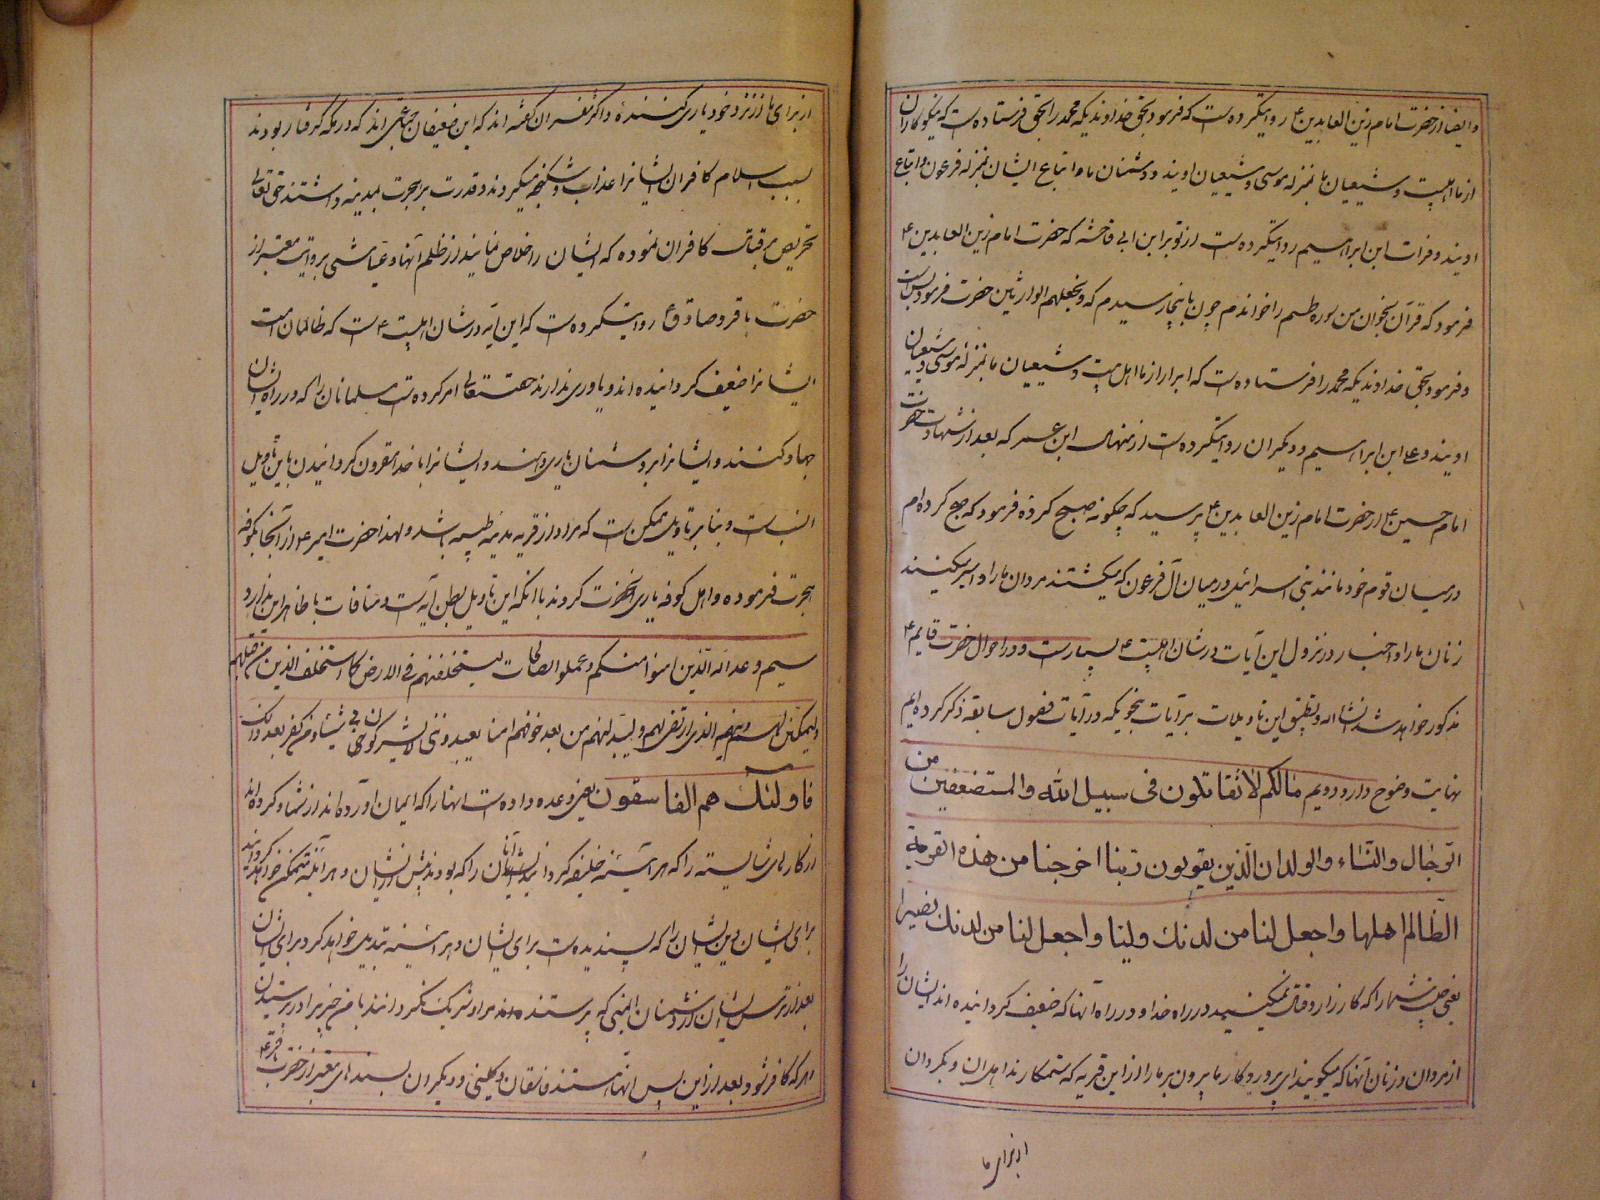 و ایضا از حضرت امام زین العابدین ع روایتکرده است که فرمود بحق خداوندیکه محمد را بحق فرستاده است که نیکوکاران
از ما اهلبیت و شیعیان ما بمنزله موسی و شیعیان اویند و دشمنان ما و اتباع ایشان بمنزله فرعون و اتباع
اویند و فرات ابن ابراهیم روایتکرده است از ثویر ابن ابی فاخته که حضرت امام زین العابدین ع
فرمود که قرآن بخوان من سوره طسم را خواندم چون باینجا رسیدم که و نجعلهم الوارثین حضرت فرمود بس است
و فرمود بحق خداوندیکه محمد را فرستاده است که ابرار از ما اهل بیت و شیعیان ما بمنزله موسی و شیعیان
اویند و علی ابن ابراهیم و دیگران روایتکرده است از منهال ابن عمر که بعد از شهادت حضرت
امام حسین ع از حضرت امام زین العابدین ع پرسید که چگونه صبح کرده فرمود که صبح کرده ام
در میان قوم خود مانند بنی اسرائیل در میان آل فرعون که میکشتند مردان ما را و اسیر میکنند
زنان ما را و اخبار در نزول این آیات در شان اهلبیت ع بسیار است و در احوال حضرت قایم ع
مذکور خواهد شد انشا الله و تطبیق این تاویلات بر آیات بنحویکه در آیات فصول سابقه ذکر کرده ایم
نهایت وضوح دارد دویم مالکم لا تقاتلون فی سبیل الله والمستضعفین من
الرّجال والنّساء والولدان الّذین یقولون ربّنا اخرجنا من هذه القریة
الظّالم اهلها واجعل لنا من لدنك ولیا واجعل لنا من لدنك نصیرا
یعنی چیست شما را که کارزار و قتال نمیکنید در راه خدا و در راه آنها که ضعیف گردانیده اند ایشان را
از مردان و زنان آنها که میگویند ای پروردگار ما بیرون بر ما را از این قریه که ستمکارند اهل ان و بگردان
از برای ما
از برای ما از نزد خود یاری کننده و اکثر مفسران گفته اند که این ضعیفان جماعتی اند که در مکه گرفتار بودند
بسبب اسلام کافران ایشانرا عذاب و شکنجه میکردند و قدرت بر هجرت بمدینه داشتند حق تعالی
تحریص بر قتال کافران نموده که ایشان را خلاص نمایند از ظلم آنها و عیاشی بروایت معتبر از
حضرت باقر و صادق ع روایتکرده است که این آیه در شان اهلبیت ع است که ظالمان امت
ایشانرا ضعیف گردانیده اند و یاوری ندارند حقتعالی امر کرده است مسلمانان را که در راه ایشان
جهاد کنند و ایشانرا بر دشمنان یاری دهند و ایشانرا با خدا مقرون گردانیدن باین تاویل
انسب است و بنابر تاویل ممکن است که مراد از قریه مدینه طیبه باشد و لهذا حضرت امیر ع از آنجا بکوفه
هجرت فرموده و اهل کوفه یاری آنحضرت کردند با آنکه این تاویل بطن آیه است و منافات با ظاهر این ندارد
سیم وعد الله الّذین امنوا منکم وعملوا الصالحات لیستخلفنهم فی الارض کما استخلف الذین من قبلهم
ولیمکنن لهم دینهم الذی ارتضی لهم ولیبدّلنهم من بعد خوفهم امنا یعبدوننی لا یشرکون بی شیئا ومن کفر بعد ذلک
فاولئك هم الفاسقون یعنی وعده داده است انها را که ایمان آورده اند از شما و کرده اند
از کارهای شایسته را که هر آینه خلیفه گرداند ایشان را که بودند پیش از ایشان و هر آینه متمکن خواهد گردانید
برای ایشان دین ایشان را که پسندیده است برای ایشان و هر آینه تبدیل خواهد کرد برای ایشان
بعد از ترس ایشان از دشمنان ایمنی که پرستند مرا و شریک نگردانند با من چیزیرا در پرستیدن
و هر که کافر شود بعد از این پس آنها هستند فاسقان و کلینی و دیگران بسندهای معتبر از حضرت باقر ع